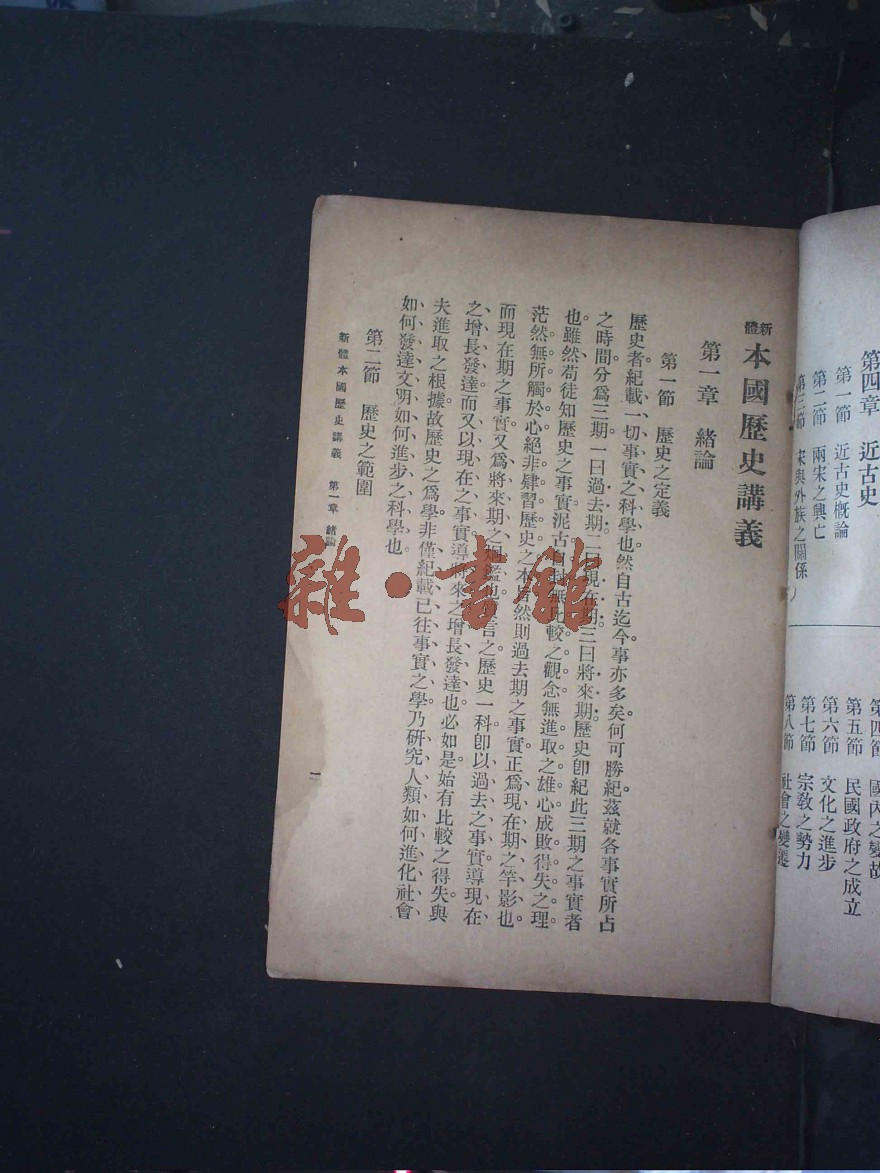 第四章　近古史
第一節　近古史概論
第二節　兩宋之興亡
第三節　宋與外族之關係
第四節　國內之變故
第五節　民國政府之成立
第六節　文化之進步
第七節　宗敎之勢力
第八節　社會之變遷
新體本國歷史講義
第一章　緒論
第一節　歷史之定義
歷史者紀載一切事實之科學也然自古迄今事亦多矣何可勝紀茲就各事實所占
之時間分爲三期一曰過去期二曰現在期三曰將來期歷史卽紀此三期之事實者
也雖然苟徒知歷史之事實泥古自封無比較之觀念無進取之雄心成敗得失之理
茫然無所觸於心絕非肄習歷史之本旨然則過去期之事實正爲現在期之竿影也
而現在期之事實又爲將來期之烱鑑也言之歷史一科卽以過去之事實導現在
之增長發達而又以現在之事實導將來之增長發達也必如是始有比較之得失與
夫進取之根據故歷史之爲學非僅紀載已往事實之學乃研究人類如何進化社會
如何發達文明如何進步之科學也
第二節　歷史之範圍
新體本國歷史講義　第一章　緒論
一
雜·書館